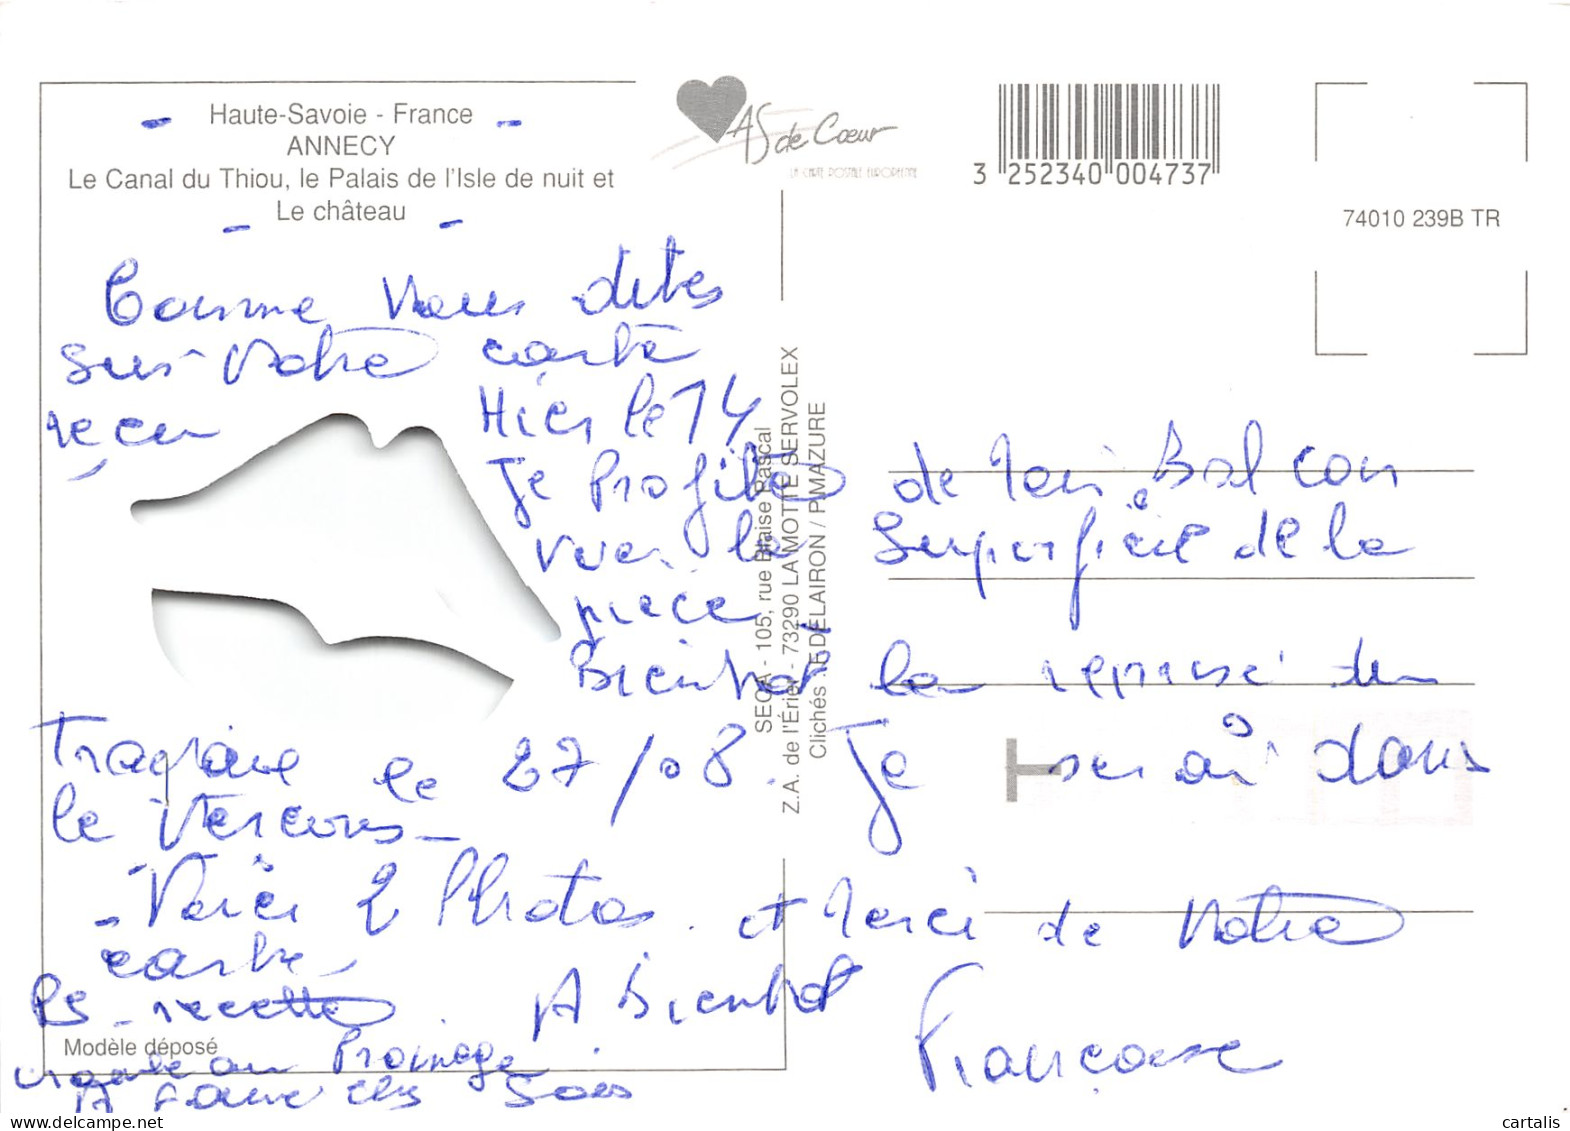 Haute-Savoie - France
ANNECY
Le Canal du Thiou, le Palais de l'Isle de nuit et
Le château
AS de Cœur
LA CARTE POSTALE EUROPÉENNE
3 252340 004737
74010 239B TR
SECA - 105, rue Blaise Pascal
Z.A. de l'Érier - 73290 LA MOTTE SERVOLEX
Clichés DELAIRON / P. MAZURE
Comme vous dites
sur votre carte
reçu Hier le 14
Je Profite de mon Balcon
vue la superficie de la
pièce
Bientot la reprise du
le 27/08. Je serai dans
le Vercors -
- Voici 2 Photos. et merci de votre
carte -
PS - recette. A Bientot
Françoise
Modèle déposé
au Fromage
A Faire ces
cartalis